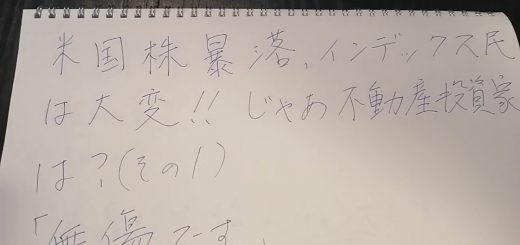 米国株暴落、インデックス民
は大変!! じゃあ不動産投資家
は?(その1)
「無傷です。